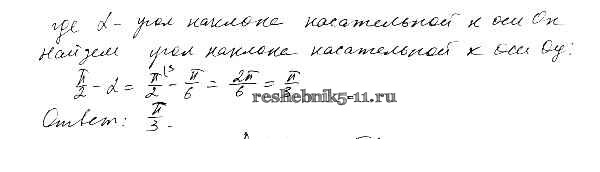 где α - угол наклона касательной к оси Ox
найдем угол наклона касательной к оси Oy:
π/2 - α = π/2 |3 - π/6 = 2π/6 = π/3
reshebnik5-11.ru
Ответ: π/3.